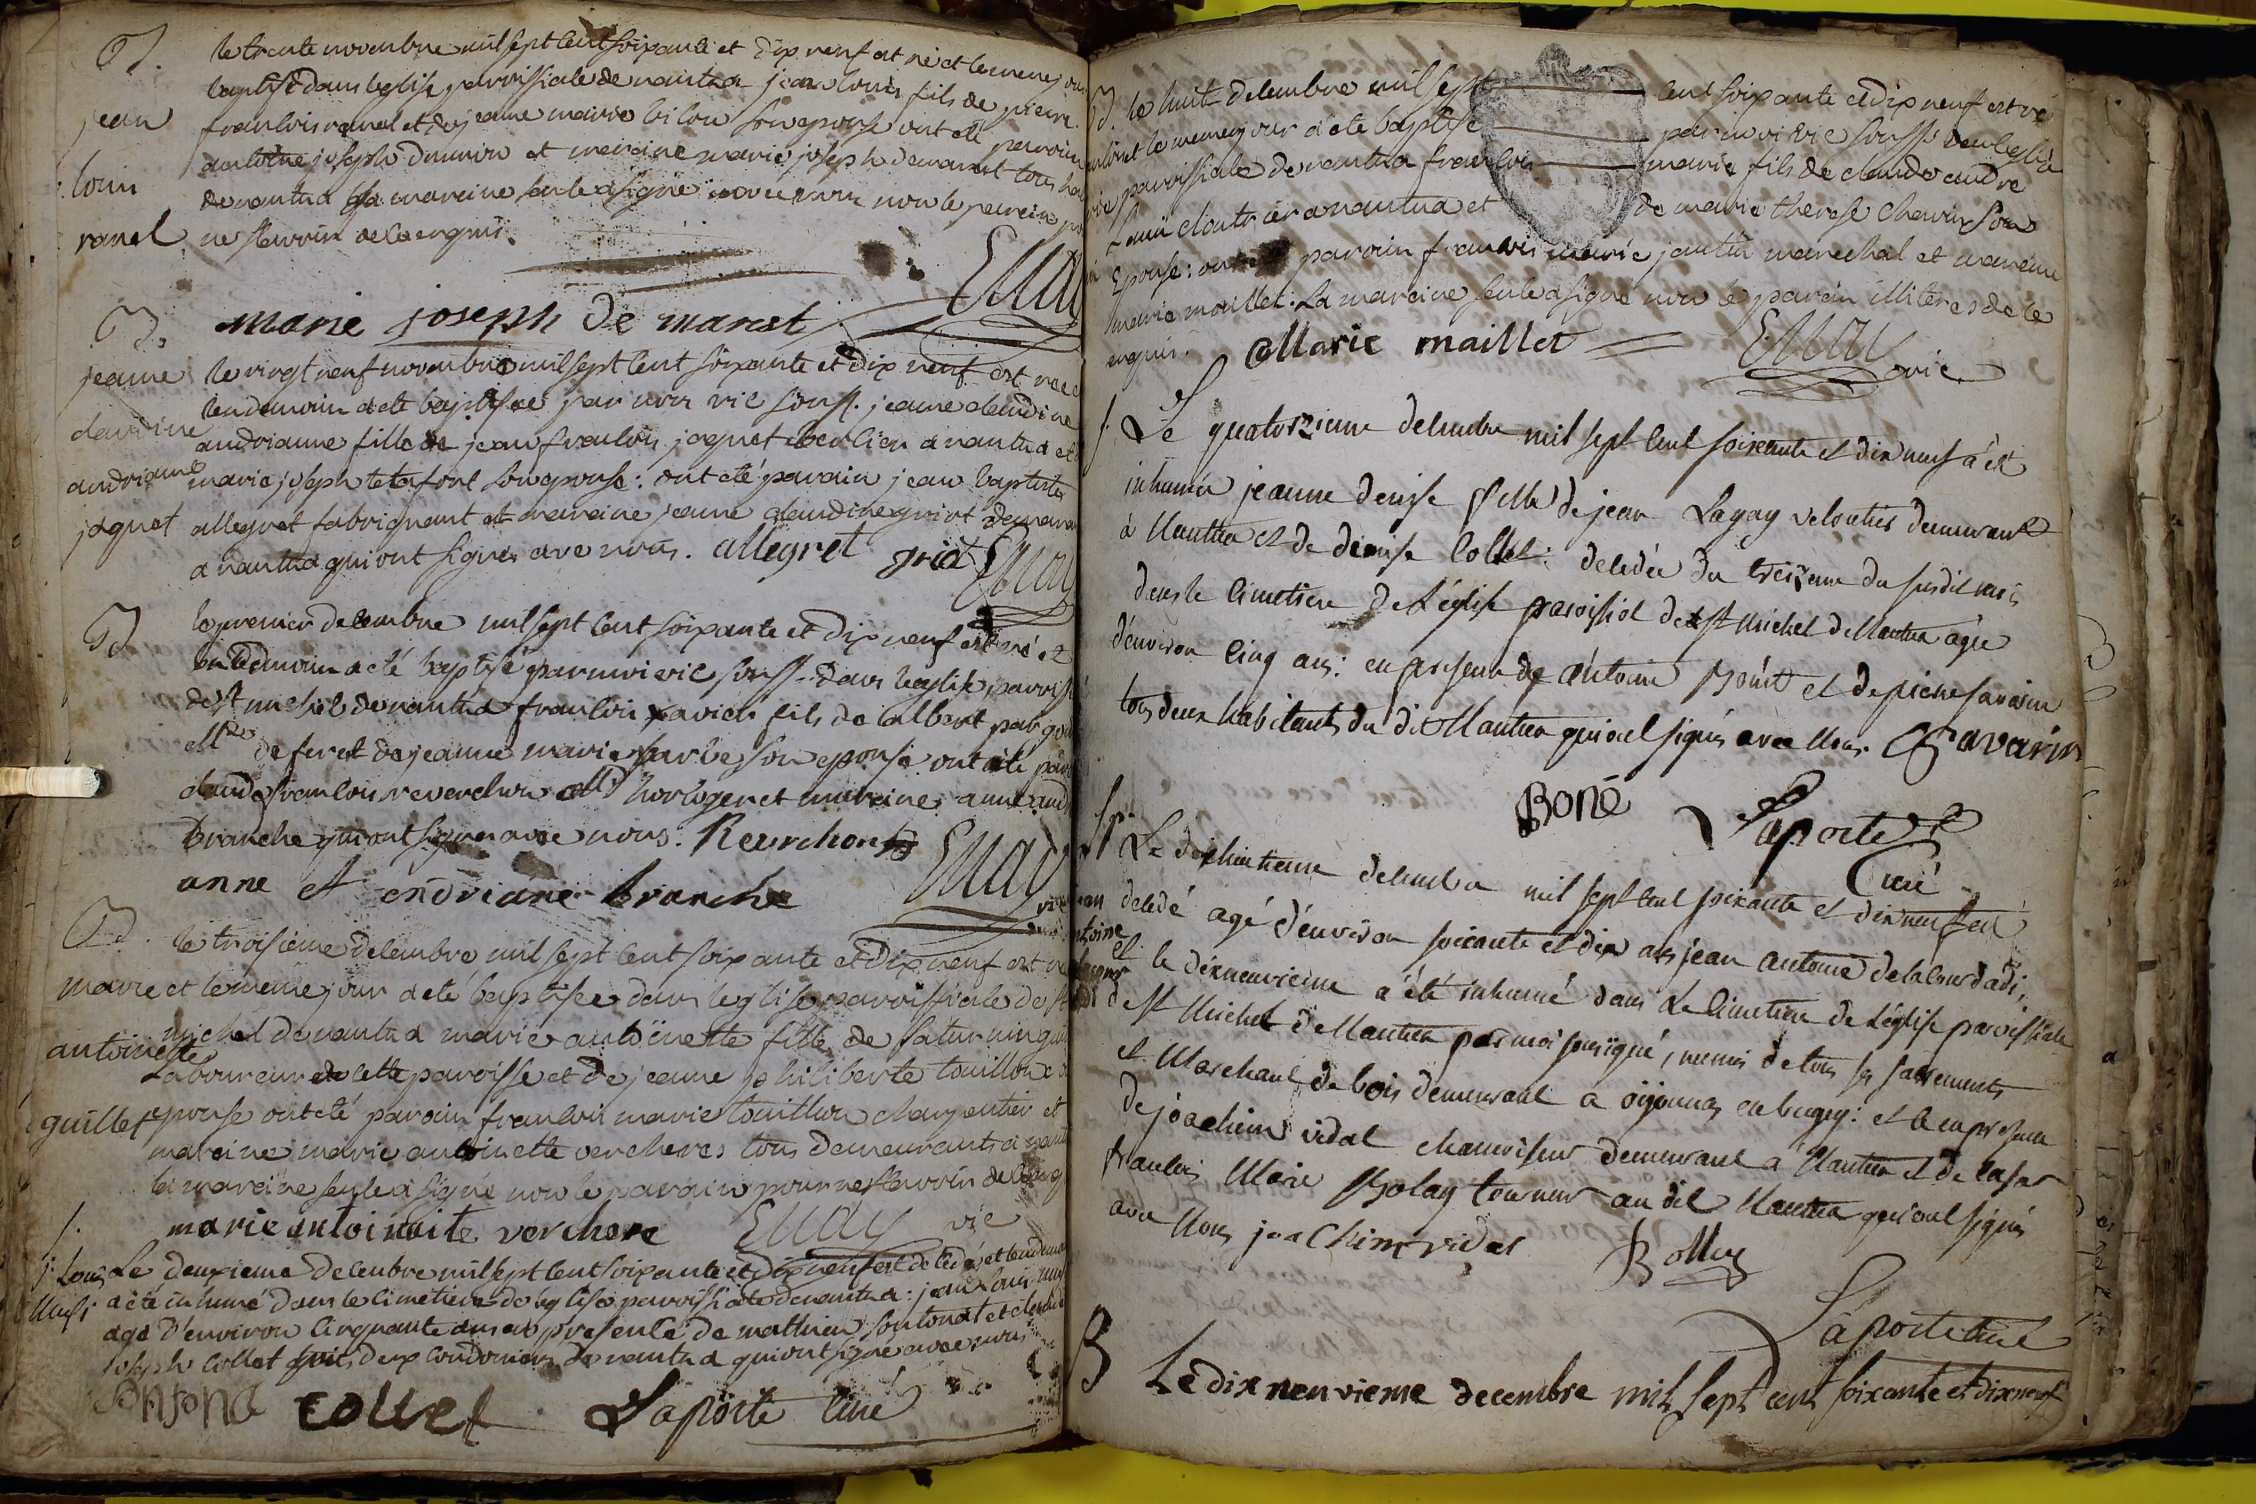 B.
le trente novembre mil sept cent soixante et dix neuf est né et le meme jour
baptisé dans leglise parroissiale de nantua jean louis fils de pierre
jean
francois ravel et de jeanne marie bilon son epouse ont eté parroin
antoine joseph dumin et mareine marie joseph demaret tous
louis
de nantua la mareine seule a signé avec nous non le parein
ravel
ne scavoir de ce enquis.
marie joseph de maret Emay
B.
jeanne
le vingt neuf novembre mil sept cent soixante et dix neuf est née
lendemain a eté baptisée par nous vic souss. jeanne claudine
claudine
andrianne fille de jean francois joquet a nantua et
andrianne
marie joseph tetafort son epouse: ont eté parain jean baptiste
joquet
allegret fabriquant et mareine jeanne claudine griot
a nantua qui ont signés avec nous. allegret griot Emay
B
le premier decembre mil sept cent soixante et dix neuf est né et
lendemain a eté baptisé par moi vic souss. dans leglise parroiss
de st michel de nantua francois xavier fils de albert
de fer et de jeanne marie barbe son epouse ont eté
claude francois reverchon horloger et mareine anne
branche qui ont signer avec nous. Reverchon
anne et endriane branche Emay
B.
le troisieme decembre mil sept cent soixante et dix neuf est
marie et le meme jour a eté baptisée dans leglise paroissiale de st
michel de nantua marie antoinette fille de saturnin
antoinette
Laboureur de cette paroisse et de jeanne philiberte touillon
guillet epouse ont eté paroin francois marie touillon charpentier et
mareine marie antoinette vercheres tous demeurants a
la mareine seule a signé non le parain pour ne scavoir de ce
marie antoinaite verchere Emay vic
j: Louis Le deuxieme decembre mil sept cent soixante et dix neuf est decedé et
a été inhumé dans le cimetiere de leglise paroissiale de nantua: jean louis
agé d'environ cinquante ans en presence de mathieu
joseph collet tous deux cordonniers de nantua qui ont signé avec nous
collet Laporte curé
B. le huit decembre mil sept cent soixante et dix neuf est né
et le meme jour a eté baptisé par moi vic souss. dans leglise
paroissiale de nantua francois marie fils de claude andre
cloutrier a nantua et de marie therese Chevrix son
Epouse: ont parroin francois marie jantin marechal et mareine
marie maillet: La mareine seule a signé non le parein illiterés de ce
enquis. Marie maillet Emay vic
Le quatorzieme decembre mil sept cent soixante et dix neuf à été
inhumée jeanne denise fille de jean Lagay veloutier demeurant
à Nantua et de denise Collet: decedée du treizeme du susdit mois
dans le cimetiere de L'église paroissial de st Michel de Nantua agée
d'environ cinq ans: en presence de Antoine Bonét et de pierre savarin
tous deux habitants du dit Nantua qui ont signés avec Nous. Savarin
Boné Laporte
Curé
Le dixhuitieme decembre mil sept cent soixante et dix neuf est
decedé agé d'environ soixante et dix ans jean antoine
et le dixneuvieme a été inhumé dans Le Cimetiere de L'église paroissiale
de St Michel de Nantua par moi soussigné, munis de tous ses sacrements
et Marchant de bois demeurant a oijonnas en bugey: et ce en presence
de joachim vidal chanvriseur demeurant à Nantua et de
francois Marie Bolay tourneur au dit Nantua qui ont signés
avec Nous joachim vidal Bollay
Laporte curé
B Le dix neuvieme decembre mil sept cent soixante et dix neuf